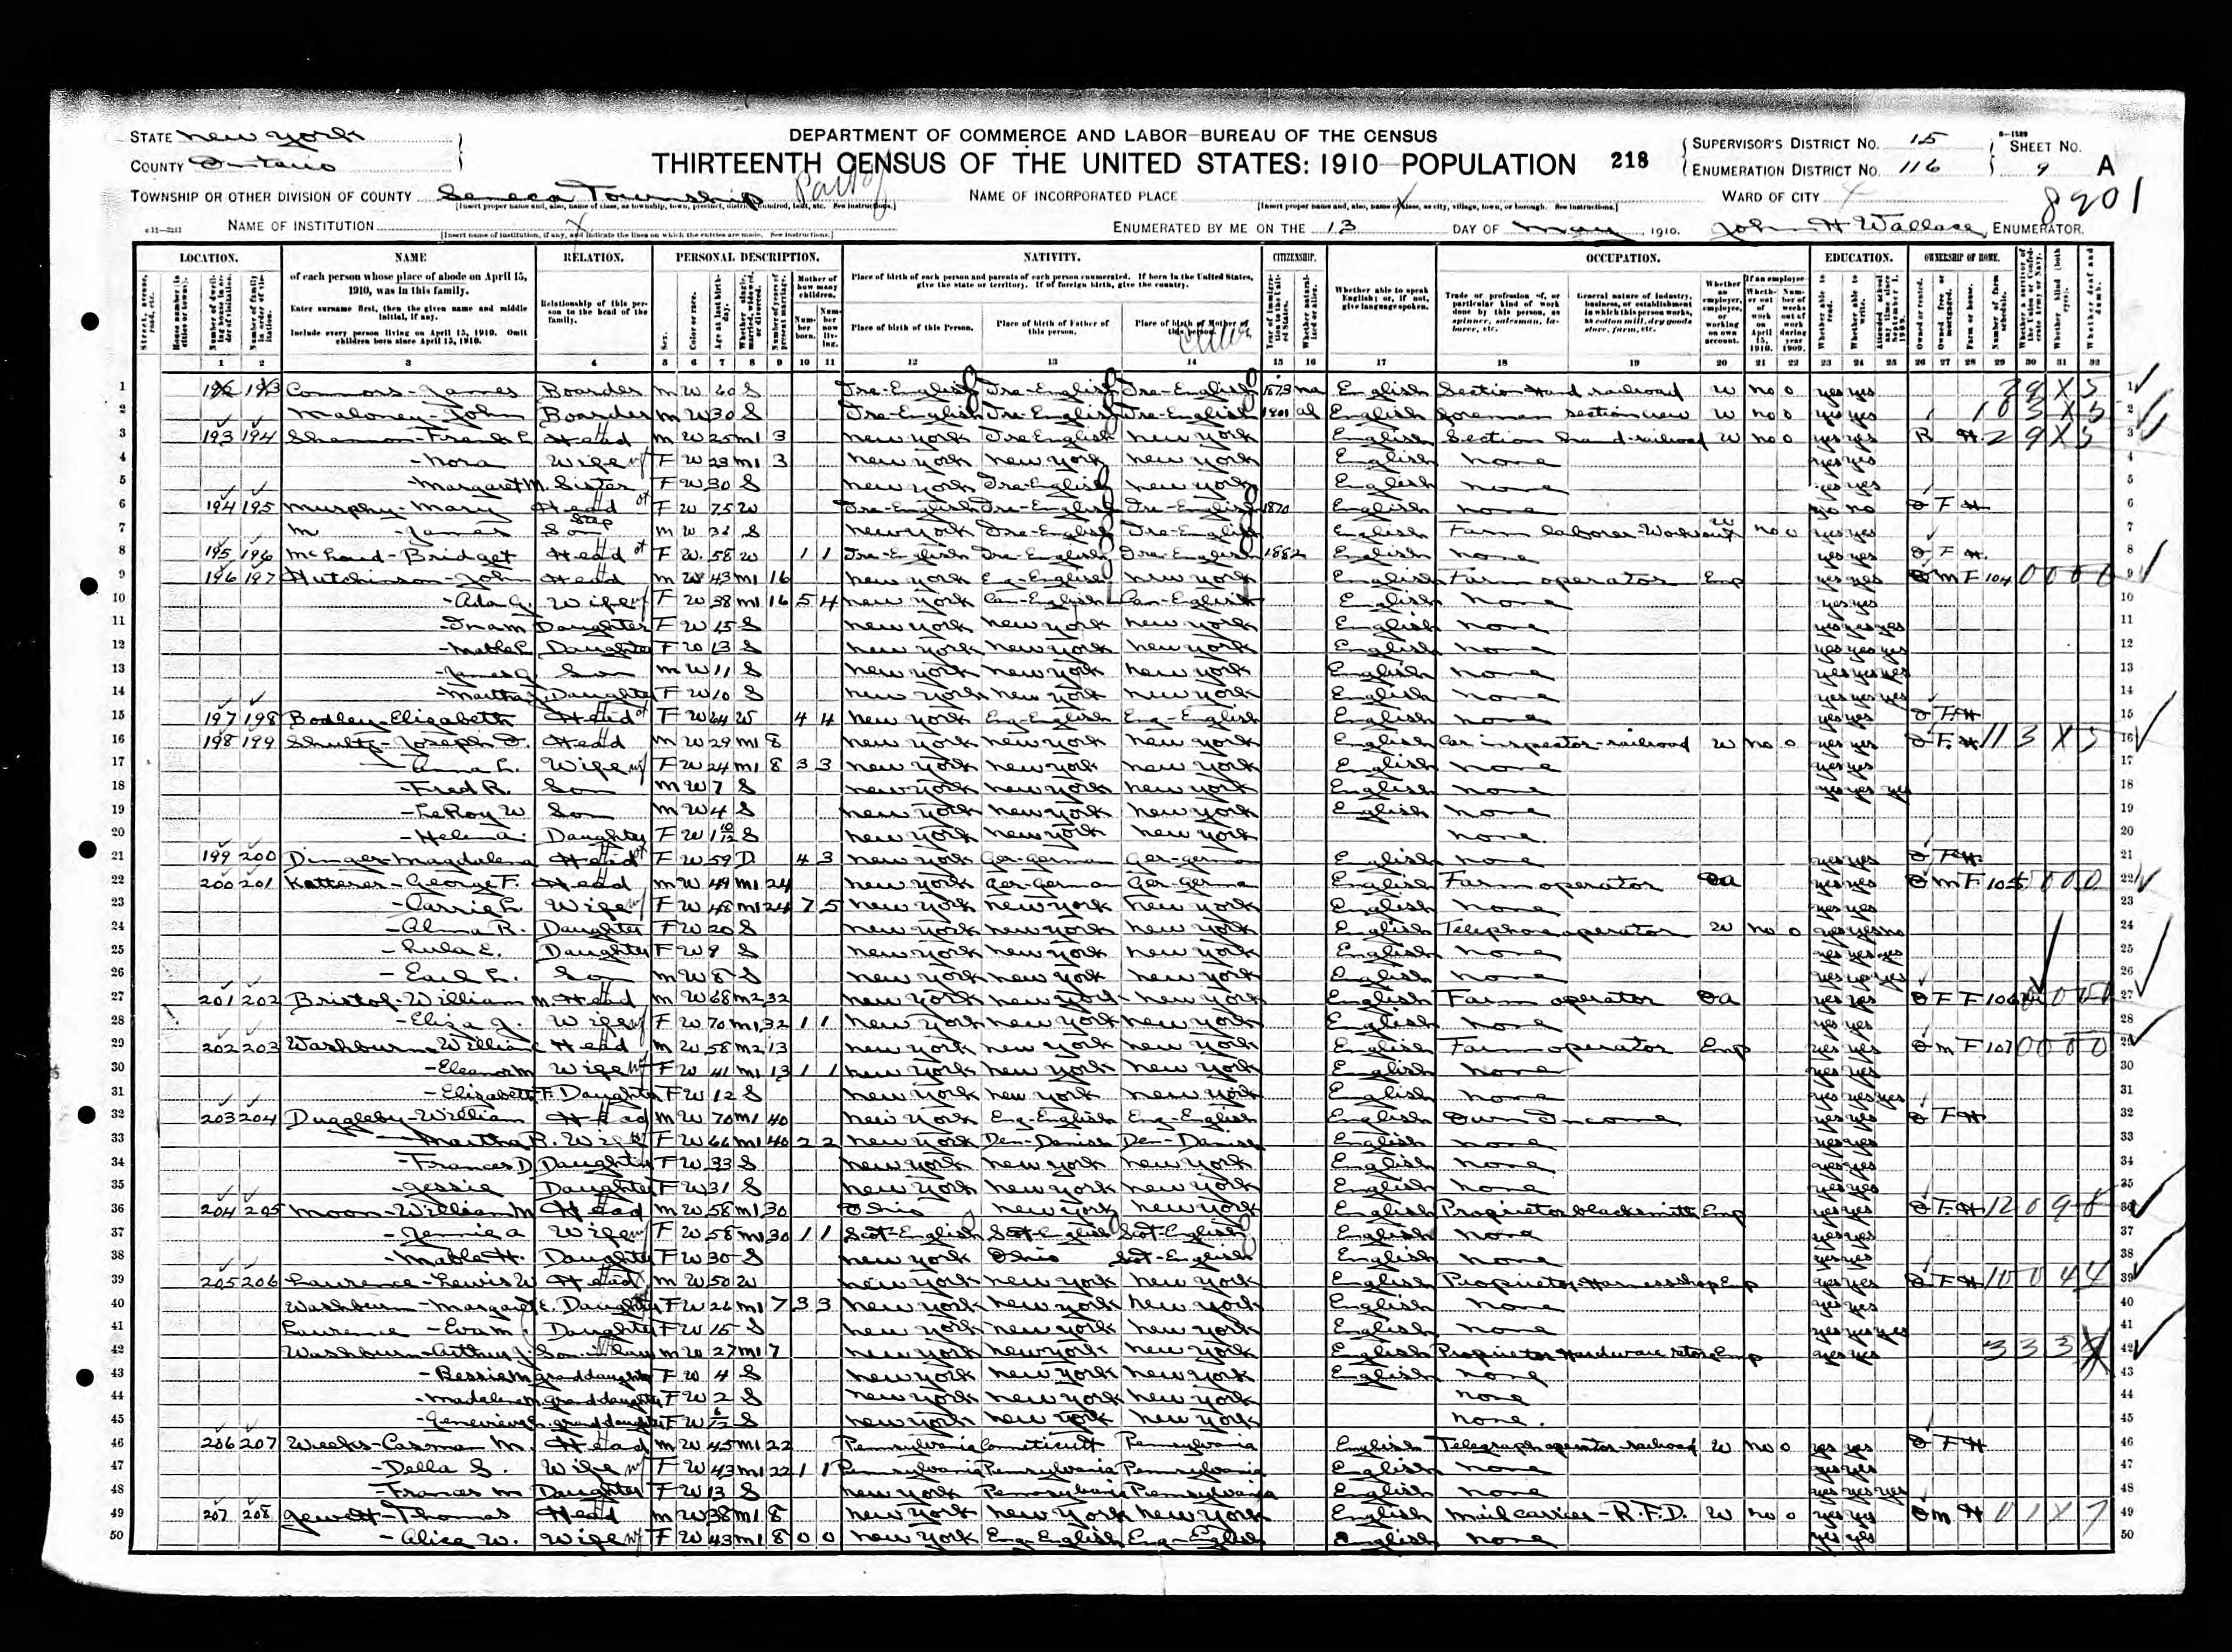 STATE New York
DEPARTMENT OF COMMERCE AND LABOR—BUREAU OF THE CENSUS
COUNTY Ontario
THIRTEENTH CENSUS OF THE UNITED STATES: 1910—POPULATION 218
SUPERVISOR'S DISTRICT No. 15 SHEET No.
ENUMERATION DISTRICT No. 116 9 A
TOWNSHIP OR OTHER DIVISION OF COUNTY Seneca Township Part of NAME OF INCORPORATED PLACE X WARD OF CITY X 8901
NAME OF INSTITUTION X ENUMERATED BY ME ON THE 13 DAY OF May, 1910. John H. Wallace, ENUMERATOR.
LOCATION. NAME RELATION. PERSONAL DESCRIPTION. NATIVITY. CITIZENSHIP. OCCUPATION. EDUCATION. OWNERSHIP OF HOME.
of each person whose place of abode on April 15, 1910, was in this family.
Enter surname first, then the given name and middle initial, if any.
Include every person living on April 15, 1910. Omit children born since April 15, 1910.
Relationship of this person to the head of the family.
Place of birth of each person and parents of each person enumerated. If born in the United States, give the state or territory. If of foreign birth, give the country.
Place of birth of this Person. Place of birth of Father of this person. Place of birth of Mother of this person.
Whether able to speak English; or, if not, give language spoken.
1 2 3 4 5 6 7 8 9 10 11 12 13 14 15 16 17 18 19 20 21 22 23 24 25 26 27 28 29 30 31 32
1 193 Connors - James Boarder M W 60 S Ire-English Ire-English Ire-English 1873 na English Section Hand railroad W no 0 yes yes
2 Maloney - John Boarder M W 30 S Ire-English Ire-English Ire-English 1901 al English Foreman section crew W no 0 yes yes
3 193 194 Shannon - Frank L Head M W 25 M1 3 New York Ire English New York English Section hand railroad W no 0 yes yes R H
4 - Nora Wife F W 23 M1 3 New York New York New York English None yes yes
5 - Margaret M. Sister F W 30 S New York Ire-English New York English None yes yes
6 194 195 Murphy - Mary Head F W 75 W Ire-English Ire-English Ire-English 1870 English None no no O F H
7 M - James Step Son M W S New York Ire-English Ire-English English Farm laborer - Works out W no 0 yes yes
8 195 196 Bridget Head F W 58 W 1 1 Ire-English Ire-English Ire-English 1882 English None yes yes O F H
9 196 197 Hutchinson - John Head M W 43 M1 16 New York Eng-English New York English Farm operator Emp yes yes O M F 104
10 - Ada G. Wife F W 38 M1 16 5 4 New York Can-English Can-English English None yes yes
11 Daughter F W 15 S New York New York New York English None yes yes yes
12 - Mable L Daughter F W 13 S New York New York New York English None yes yes yes
13 - James G. Son M W 11 S New York New York New York English None yes yes yes
14 - Martha Daughter F W 10 S New York New York New York English None yes yes yes
15 197 198 Bodley - Elizabeth Head F W 64 W 4 4 New York Eng-English Eng-English English None yes yes O F H
16 198 199 Shultz - Joseph Head M W 29 M1 8 New York New York New York English Car inspector - railroad W no 0 yes yes O F H
17 - Anna L. Wife F W 24 M1 8 3 3 New York New York New York English None yes yes
18 - Fred R. Son M W 7 S New York New York New York English None yes yes yes
19 - LeRoy W Son M W 4 S New York New York New York English None
20 - Helen a. Daughter F W 1 10/12 S New York New York New York None
21 199 200 Dinger - Magdalena Head F W 59 D 4 3 New York Ger-German Ger-German English None yes yes O F H
22 200 201 Katterer - George F. Head M W 49 M1 24 New York Ger-German Ger-German English Farm operator OA O M F 105
23 - Carrie L Wife F W 48 M1 24 7 5 New York New York New York English None yes yes
24 - Alma R. Daughter F W 20 S New York New York New York English Telephone operator W no 0 yes yes no
25 - Lula E. Daughter F W 9 S New York New York New York English None yes yes yes
26 - Earl L. Son M W 8 S New York New York New York English None yes yes yes
27 201 202 Bristol - William M. Head M W 68 M2 32 New York New York New York English Farm operator OA yes yes O F F 106
28 - Eliza J. Wife F W 70 M1 32 1 1 New York New York New York English None yes yes
29 202 203 Washburn William Head M W 58 M2 13 New York New York New York English Farm operator Emp yes yes O M F 107
30 - Eleanor M Wife F W 41 M1 13 1 1 New York New York New York English None yes yes
31 - Elizabeth F. Daughter F W 12 S New York New York New York English None yes yes yes
32 203 204 Duggleby - William Head M W 70 M1 40 New York Eng-English Eng-English English Own Income yes yes O F H
33 - Martha R. Wife F W 66 M1 40 2 2 New York Den-Danish Den-Danish English None yes yes
34 - Frances D Daughter F W 33 S New York New York New York English None yes yes
35 - Jessie Daughter F W 31 S New York New York New York English None yes yes
36 204 205 Moon - William M Head M W 58 M1 30 Ohio New York New York English Proprietor blacksmith Emp yes yes O F H
37 - Jennie a Wife F W 58 M1 30 1 1 Scot-English Scot-English Scot-English English None yes yes
38 - Mable H. Daughter F W 30 S New York Ohio Scot-English English None yes yes
39 205 206 Laurence - Lewis W Head M W 50 W New York New York New York English Proprietor Harness shop Emp yes yes O F H
40 Washburn - Margaret E. Daughter F W 26 M1 7 3 3 New York New York New York English None yes yes
41 Laurence - Eva M. Daughter F W 15 S New York New York New York English None yes yes yes
42 Washburn - Arthur J. Son in law M W 27 M1 7 New York New York New York English Proprietor Hardware store Emp yes yes
43 - Bessie M granddaughter F W 4 S New York New York New York English None
44 - Madeline M. granddaughter F W 2 S New York New York New York None
45 - Genevieve granddaughter F W 6/12 S New York New York New York None.
46 206 207 Weeks - Casman M. Head M W 45 M1 22 Pennsylvania Conneticutt Pennsylvania English Telegraph operator railroad W no 0 yes yes O F H
47 - Della S. Wife F W 43 M1 22 1 1 Pennsylvania Pennsylvania Pennsylvania English None yes yes
48 - Frances M Daughter F W 13 S New York Pennsylvania Pennsylvania English None yes yes yes
49 207 208 Jewett - Thomas Head M W 38 M1 8 New York New York New York English Mail carrier - R.F.D. W no 0 yes yes O M H
50 - Alice W. Wife F W 43 M1 8 0 0 New York Eng-English Eng-English English None yes yes